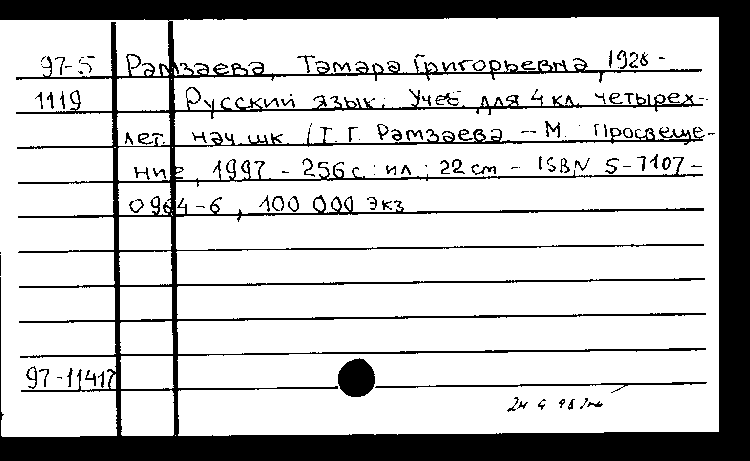 97-5 Рамзаева, Тамара Григорьевна, 1928 -
1119 Русский язык. Учеб. для 4 кл. четырех-
лет. нач. шк. / Т. Г. Рамзаева - М. Просвеще-
ние, 1997. - 256 с : ил ; 22 cm - ISBN 5-7107-
0964-6, 100 000 экз
97-11417